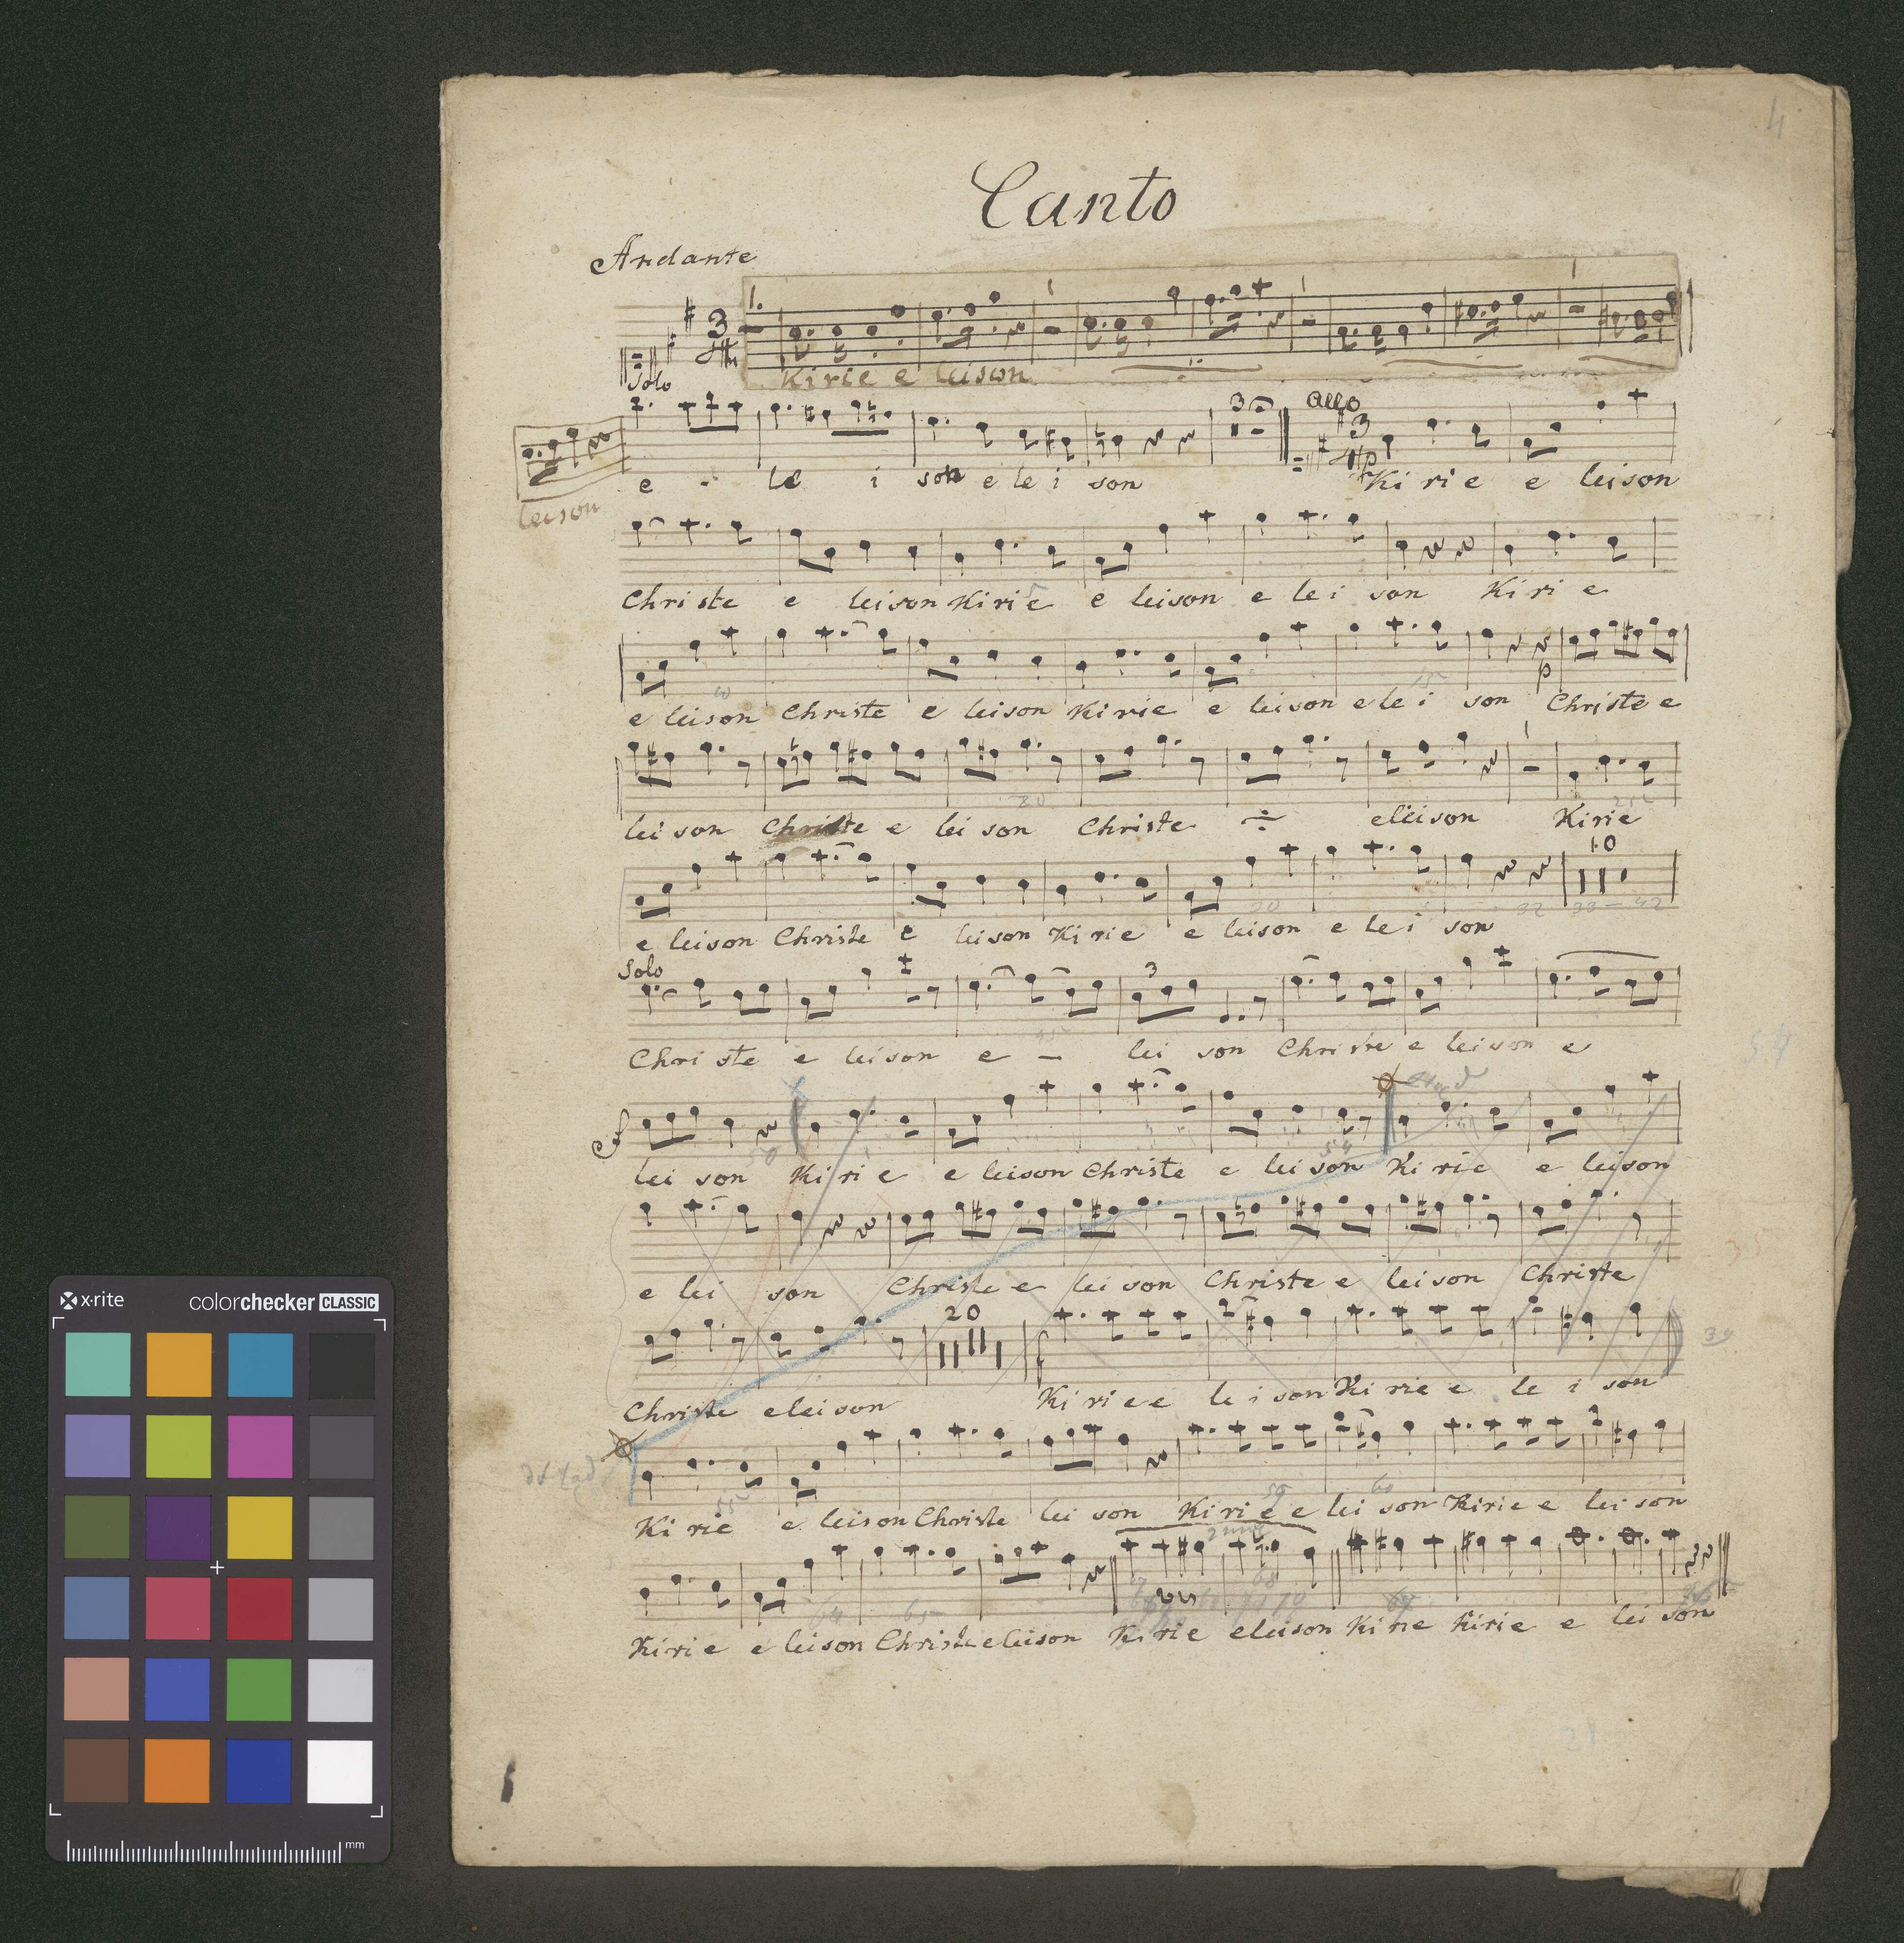 4
Canto
Andante
1.
3
4
Kirie e leison
Solo
3
allo
3
4
p
e le i son e le i son Ki ri e e leison
leison
Christe e leison Kirie e leison e le i son Ki ri e
p
e leison Christe e leison Kirie e leison e le i son Christe e
lei son Christe e lei son Christe eleison Kirie
10
32 33 - 42
e leison Christe e leison Kirie e leison e le i son
Solo
3
Chri ste e leison e - lei son Christe e leison e
f
lei son Ki ri e e leison Christe e lei son Ki rie e leison
e lei son Christe e lei son Christe e leison Christe
20
f
Christe eleison Ki ri e e le i son Ki rie e le i son
Ki rie e leison Christe lei son Ki ri e e lei son Kirie e lei son
Kirie e leison Christe eleison Ki rie eleison Ki rie Kirie e lei son
x·rite
colorchecker CLASSIC
mm